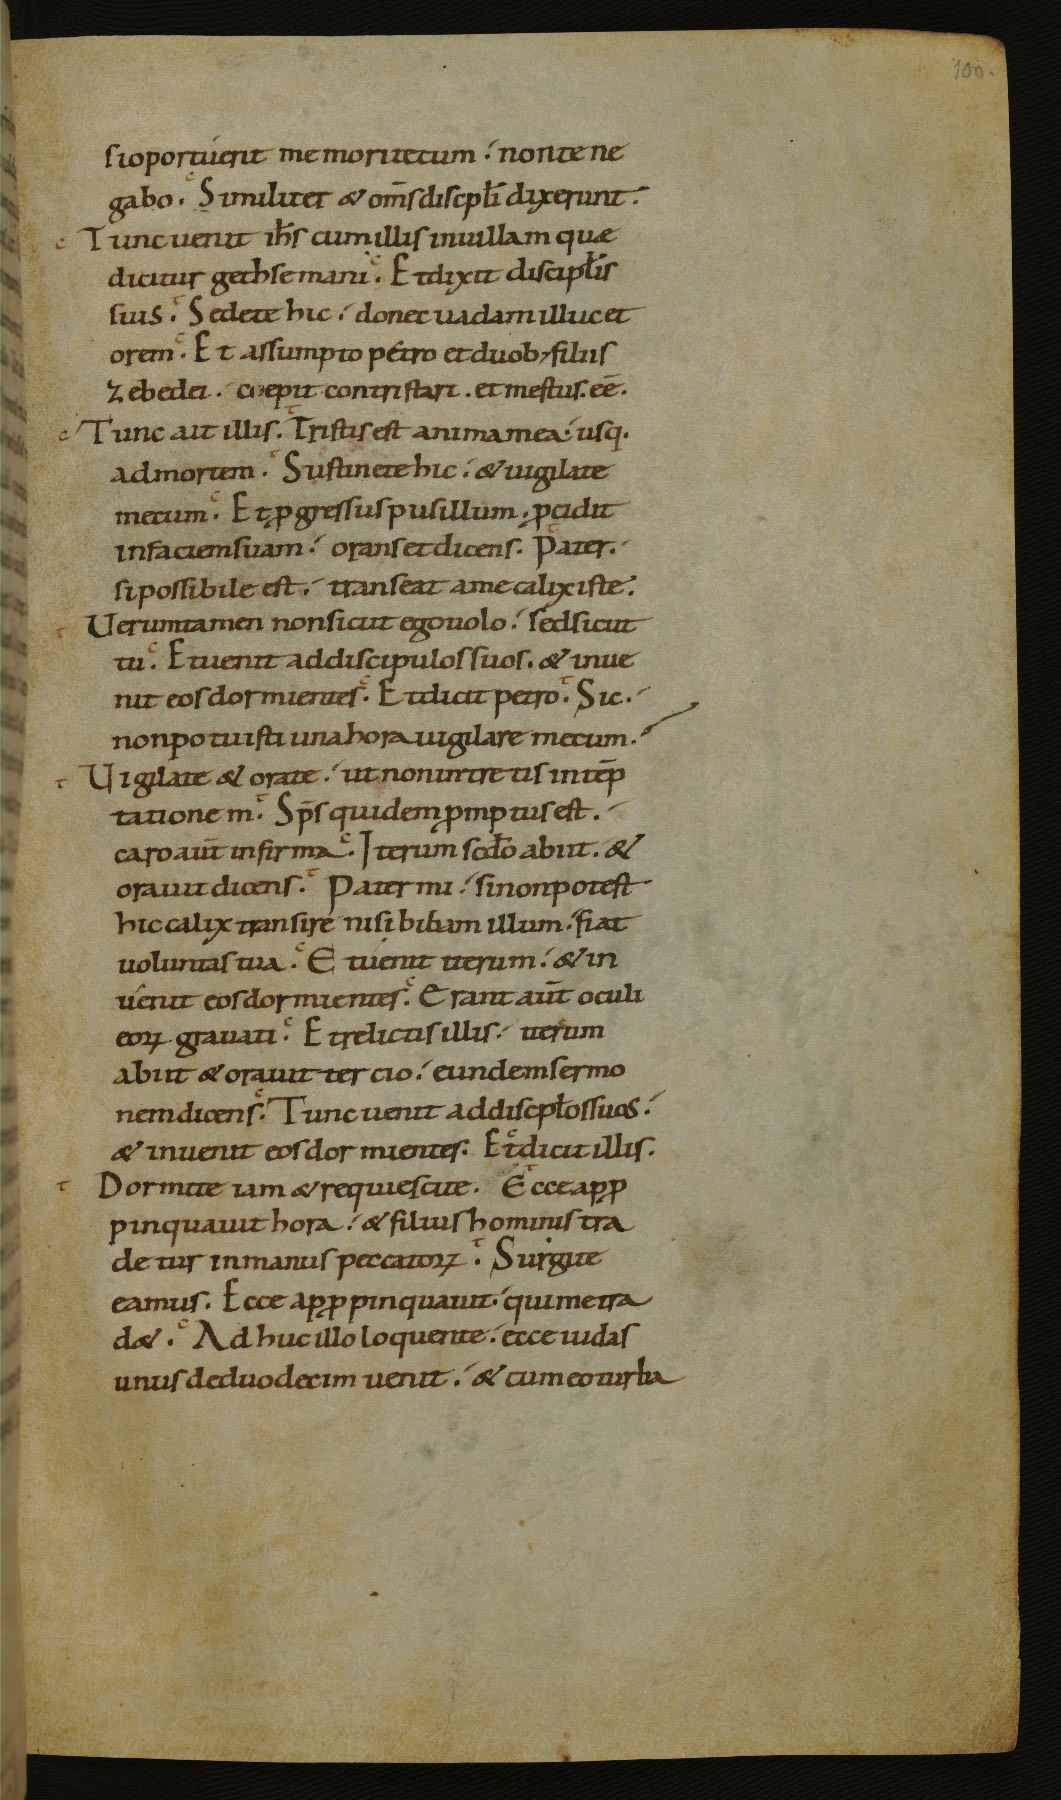 100.
si oportuerit me mori tecum. non te ne
gabo. Similiter & om̄s discpłi dixerunt.
c Tunc uenit ih̅s cum illis in uillam quæ
dicitur gethsemani. c Et dixit discipłis
suis. t Sedete hic. donec uadam illuc et
orem. c Et assumpto petro et duob; filiis
zebedei. coepit contristari. et mestus. eē.
c Tunc ait illis. t Tristis est anima mea. usq.
ad mortem. t Sustinete hic. & uigilate
mecum. c Et ꝓgressus pusillum. ꝓcidit
in faciem suam. orans et dicens. t Pater.
si possibile est. transeat a me calix iste.
t Uerumtamen non sicut ego uolo. sed sicut
tu. c Et uenit ad discipulos suos. & inue
nit eos dormientes. c Et dicit petro. t Sic.
non potuisti una hora uigilare mecum.
t Uigilate & orate. ut non intretis in tēp
tationem. t Sp̄s quidem ꝓmptus est.
caro aūt infirma. c Iterum scdo abiit. &
orauit dicens. t Pater mi. si non potest
hic calix transire nisi bibam illum. fiat
uoluntas tua. c Et uenit iterum. & in
uenit eos dormientes. c Erant aūt oculi
eoꝝ grauati. c Et relictis illis. iterum
abiit & orauit tercio. eundem sermo
nem dicens. c Tunc uenit ad discpłos suos.
& inuenit eos dormientes. c Et dicit illis.
t Dormite iam & requiescite. t Ecce apꝓ
pinquauit hora. & filius hominis tra
detur in manus peccatoꝝ. t Surgite
eamus. Ecce apꝓpinquauit. qui me tra
d&. c Adhuc illo loquente. ecce iudas
unus de duodecim uenit. & cum eo turba